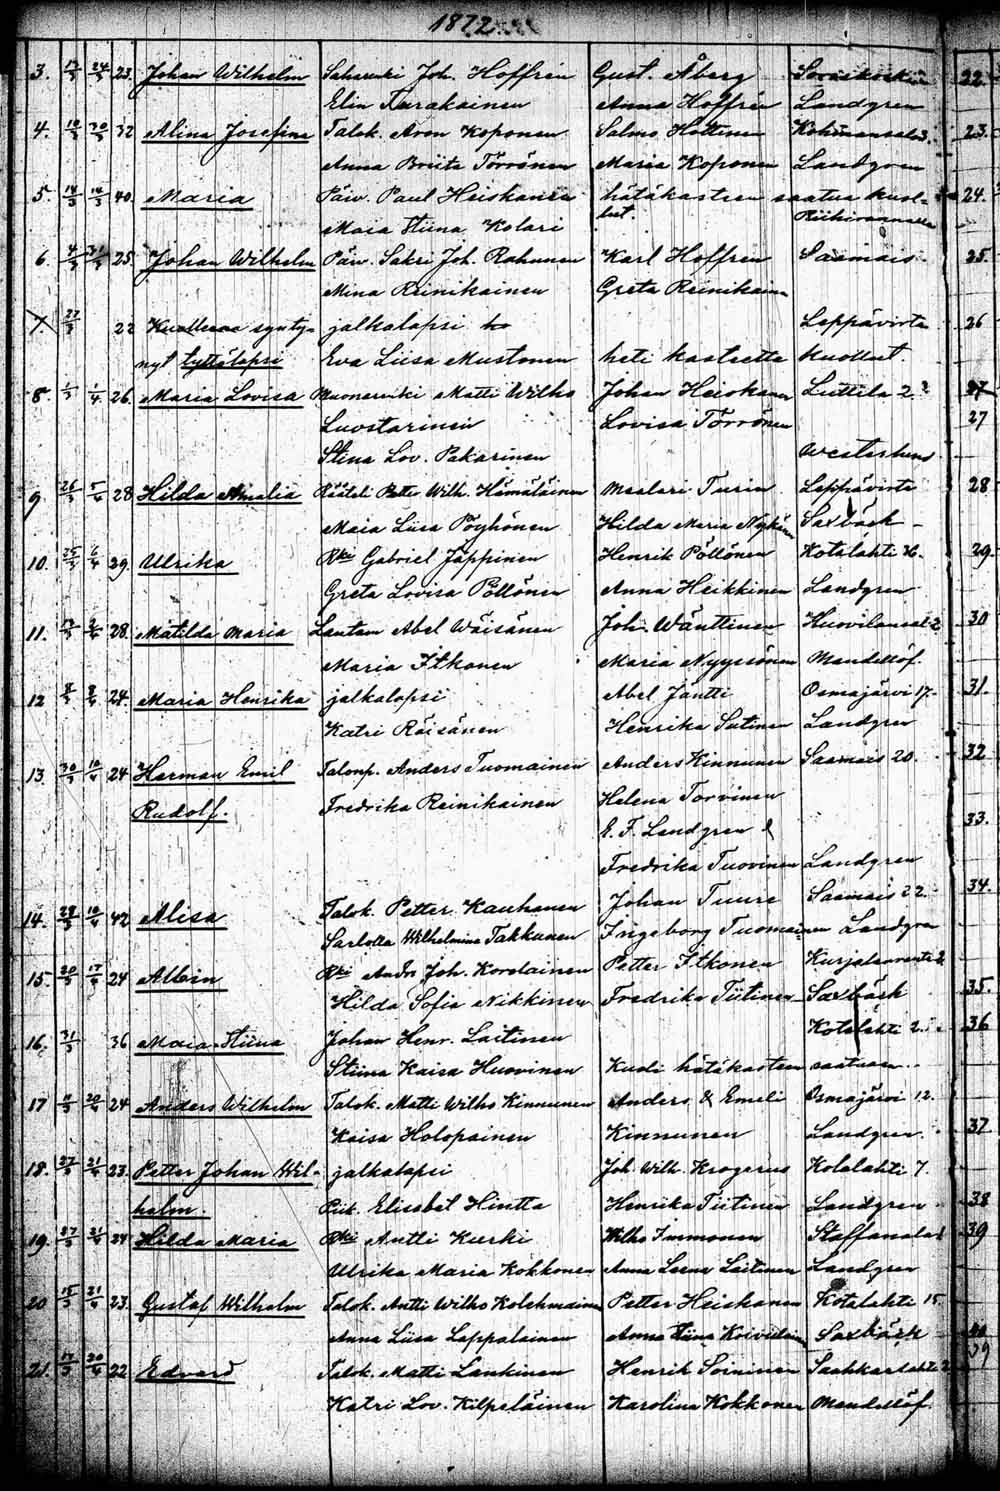 1872
3. 17/3 24/3 23. Johan Wilhelm Joh. Hoffrén Gust. Åberg 22
Elin Turakainen Anna Hoffrén Landgren
4. 10/3 30/3 32 Alina Josefina Talok. Aron Koponen Salmo Hottinen 23.
Anna Briita Törrönen Maria Koponen Landgren
5. 14/3 14/3 40. Maria Päiw. Paul Heiskanen hätäkasteen saatua kuol- 24.
lut.
Maia Stiina Kolari
6. 4/3 31/3 25. Johan Wilhelm Päiw. Sakri Joh. Rahunen Karl Hoffrén Saamais 25.
Mina Reinikainen Greta Reinikainen
7. 27/3 22 Kuolleena synty- jalkalapsi Leppävirta 26
nyt tyttölapsi Eva Liisa Mustonen heti kastetta kuollut.
8 1/3 1/4 26. Maria Lovisa Matti Wilho Johan Heiskanen Luttila 2 27
Luostarinen Lovisa Törrönen 27
Stina Lov. Pakarinen
9 26/3 5/4 28 Hilda Amalia Räätäli Petter Wilh. Hämäläinen Maalari Turin Leppävirta 28
Maia Liisa Pöyhönen Hilda Maria Nykänen Saxbäck
10. 25/3 6/4 29. Ulrika Rki Gabriel Jäppinen Henrik Pöllönen Kotalahti 26. 29.
Greta Lovisa Pöllönen Anna Heikkinen Landgren
11. 28. Matilda Maria Lautam Abel Wäisänen Joh. Wänttinen 30
Maria Itkonen Maria Nyyssönen Mandellöf.
12 8/4 24. Maria Henrika jalkalapsi Abel Jäntti Osmajärvi 17. 31.
Katri Räisänen Henrika Sutinen Landgren
13 30/3 10/4 24 Herman Emil Talonp. Anders Tuomainen Anders Kinnunen Saamais 20. 32
Rudolf. Fredrika Reinikainen Helena Torvinen
E. F. Landgren & 33.
Fredrika Tuovinen Landgren
14. 28/3 10/4 42 Alisa Talok. Petter Kauhanen Johan Tuure Saamais 22. 34
Sarlotta Wilhelmina Takkunen Ingeborg Tuomainen Landgren
15. 20/3 17/4 24 Albin Rki Andrs Joh. Korolainen Petter Itkonen
Hilda Sofia Nikkinen Fredrika Tiitinen Saxbäck 35.
16. 31/3 36 Maia Stiina Johan Henr. Laitinen Kotalahti 2. 36
Stiina Kaisa Huovinen Kuoli hätäkasteen saatuaan.
17 11/3 20/4 24 Anders Wilhelm Talok. Matti Wilho Kinnunen Anders & Emeli Osmajärvi 12.
Kaisa Holopainen Kinnunen Landgren. 37
18. 27/3 21/4 23. Petter Johan Wil- jalkalapsi Joh. Wilh. Krogerus Kotalahti 7.
helm. Piik. Elisabet Hintta Henrika Tiitinen Landgren 38
19. 27/3 21/4 24 Hilda Maria Rki Antti Kurki Wilho Immonen 39
Ulrika Maria Kokkonen Anna Leena Laitinen Landgren
20 15/3 21/4 23. Gustaf Wilhelm Talok. Antti Wilho Kolehmainen Petter Heiskanen Kotalahti 15.
Anna Liisa Lappalainen Anna Stina Saxbäck 40
21. 17/3 30/4 22 Edvard Talok. Matti Lankinen Henrik Soininen 39
Katri Lov. Kilpeläinen Karolina Kokkonen Mandellöf.